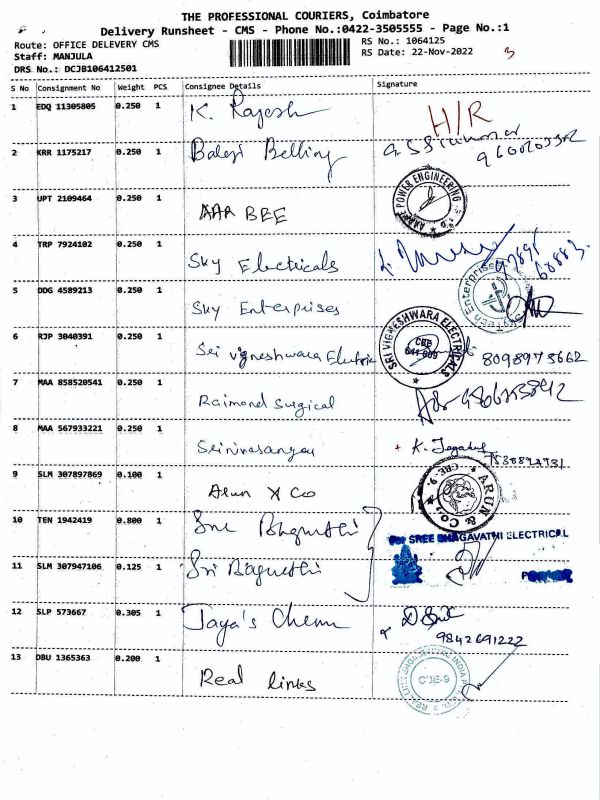 THE PROFESSIONAL COURIERS, Coimbatore
Delivery Runsheet - CMS - Phone No.:0422-3505555 - Page No.:1
Route: OFFICE DELEVERY CMS RS No.: 1064125
Staff: MANJULA RS Date: 22-Nov-2022 3
DRS No.: DCJB106412501
S No Consignment No Weight PCS Consignee Details Signature
1 EDQ 11305805 0.250 1 K. Rajesh H/R
2 KRR 1175217 0.250 1 Balaji Belling
3 UPT 2109464 0.250 1 AAR BEE POWER ENGINEERING
4 TRP 7924102 0.250 1 Sky Electricals 97891
68883
5 DDG 4589213 0.250 1 Sky Enterprises Enterprises
6 RJP 3040391 0.250 1 Sri Vigneshwara Electric SRI VIGNESHWARA ELECTRICALS CBE 641 009 8098973662
7 MAA 858520541 0.250 1 Raimond Surgical
8 MAA 567933221 0.250 1 K.
9 SLM 307897869 0.100 1 Arun & Co ARUN & CO. CBE-9.
10 TEN 1942419 0.800 1 Sree For SREE BHAGAVATHI ELECTRICAL
11 SLM 307947106 0.125 1 Sri
12 SLP 573667 0.305 1 Jaya's Chem
9842691222
13 DBU 1365363 0.200 1 Real links CBE-9